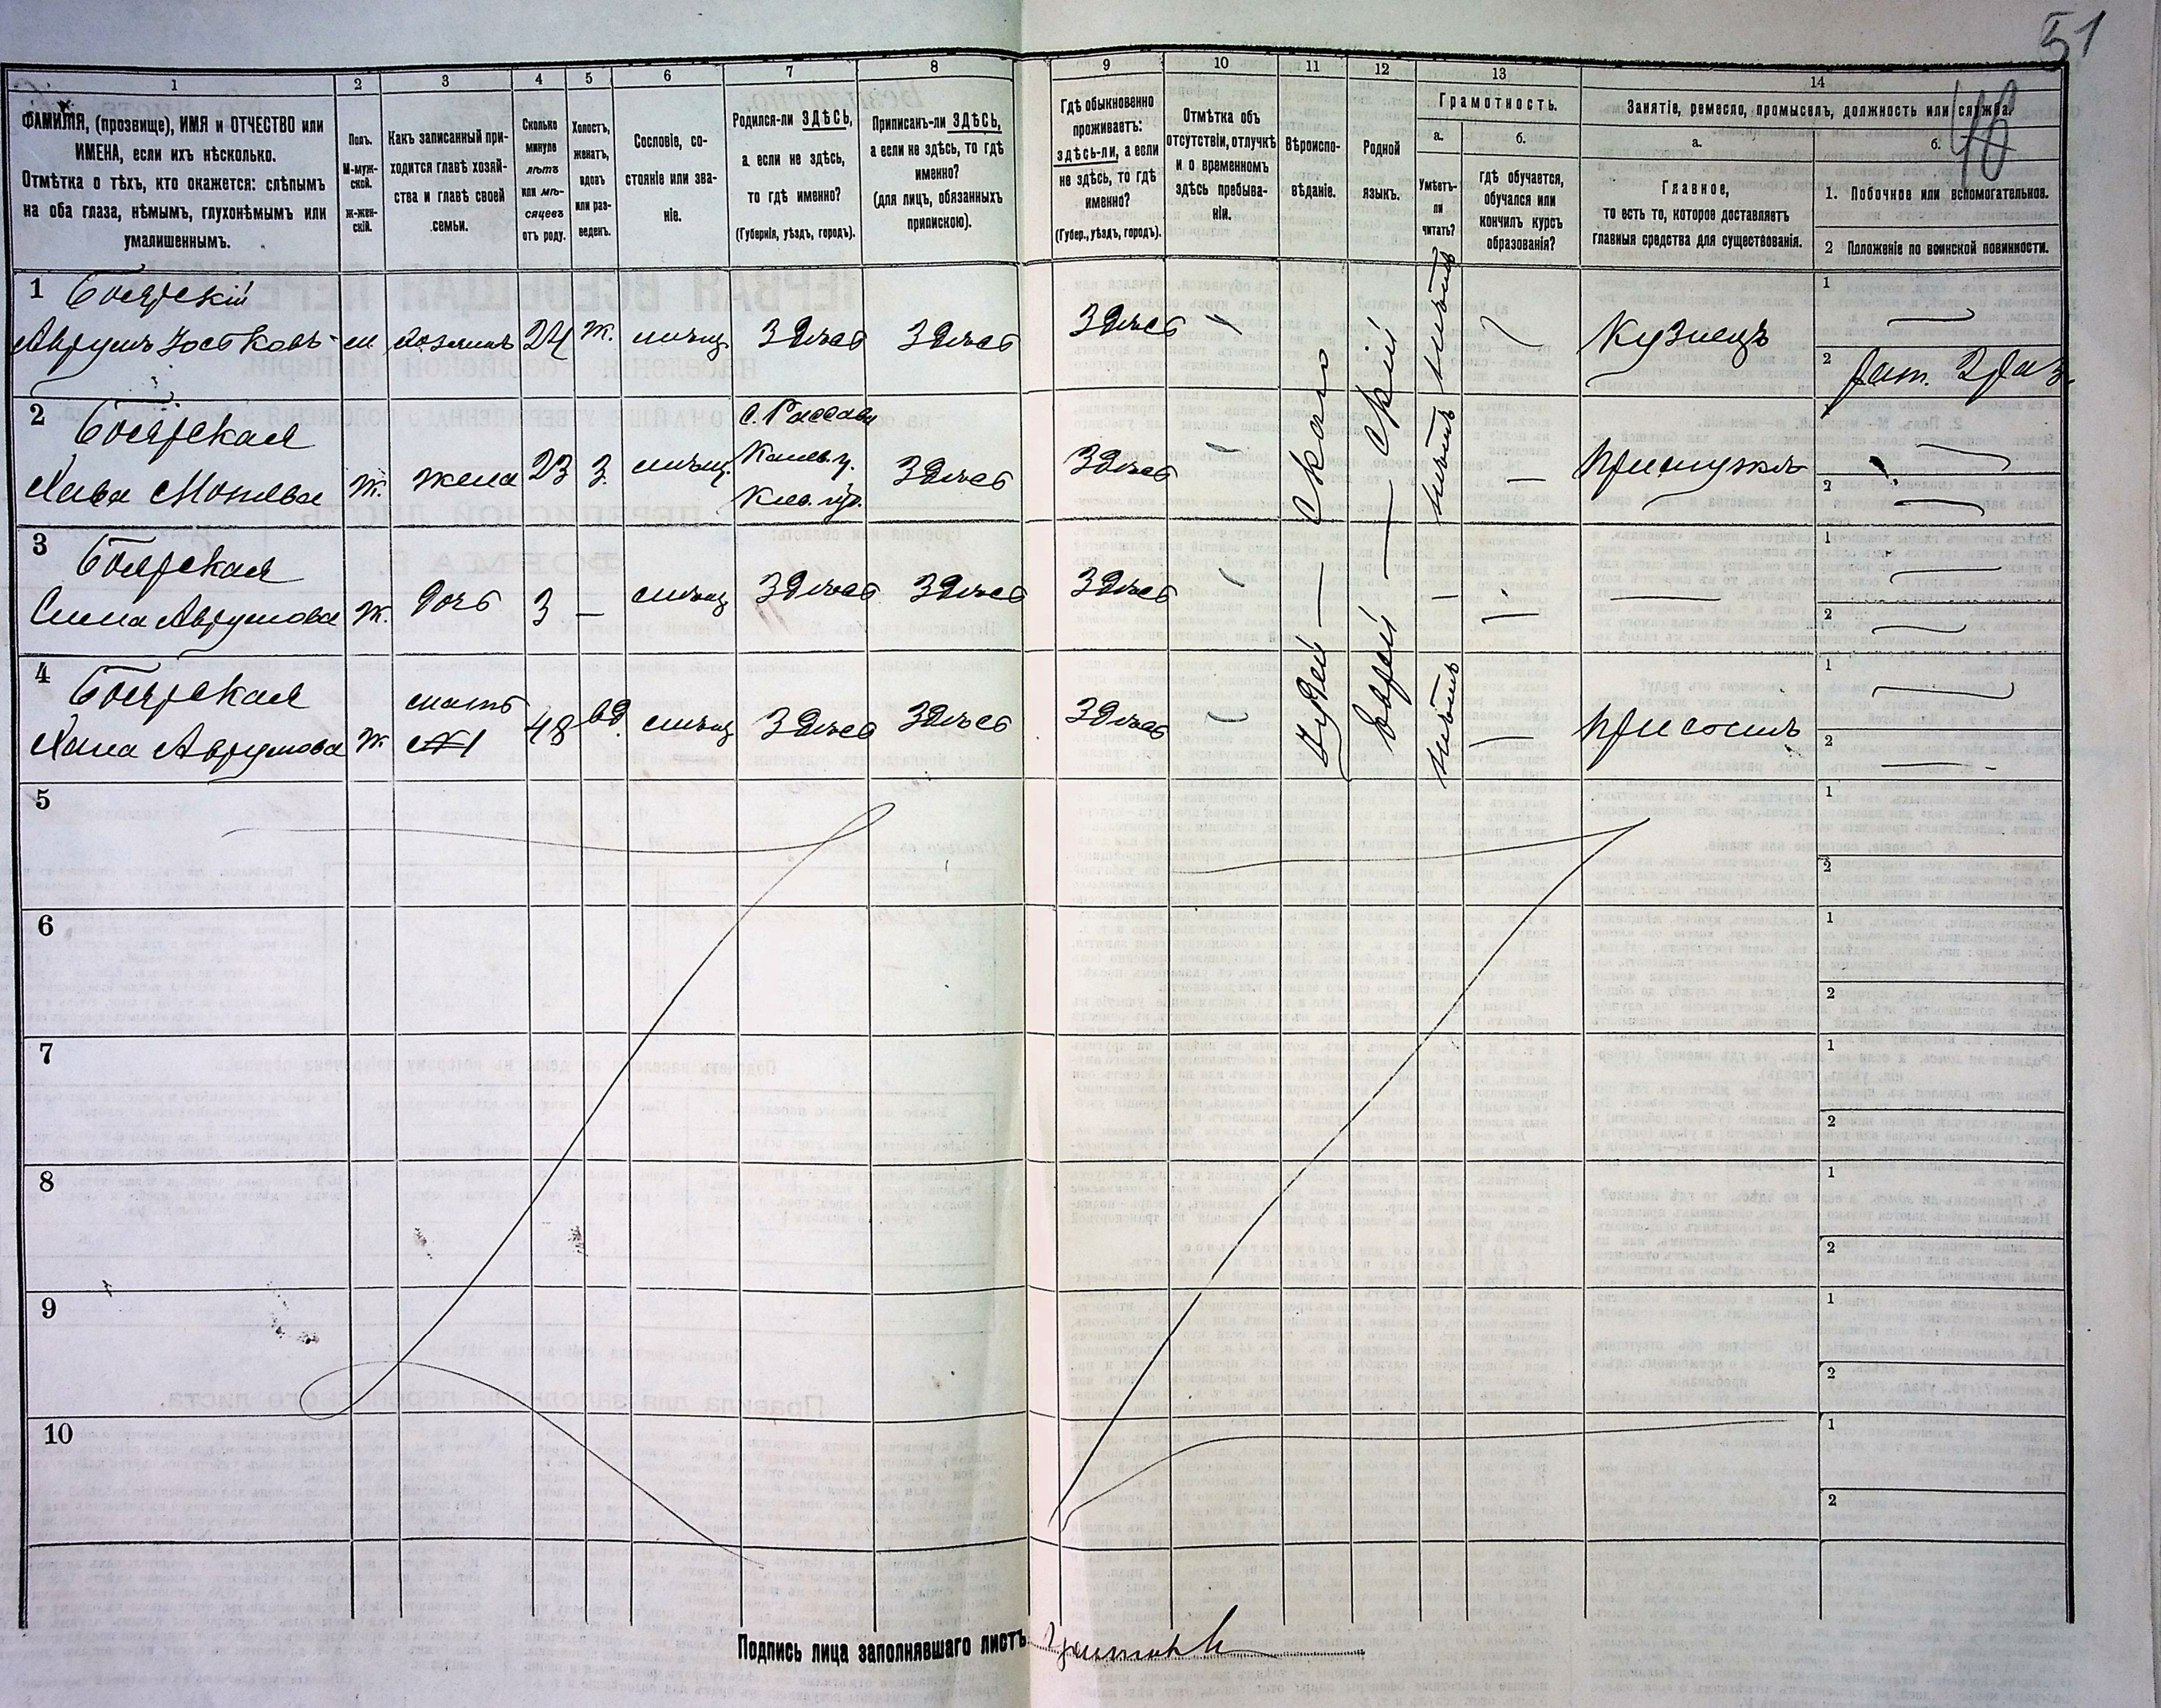 51
40
1
2
3
4
5
6
7
8
9
10
11
12
13
14
ФАМИЛІЯ, (прозвище), ИМЯ и ОТЧЕСТВО или
ИМЕНА, если ихъ нѣсколько.
Отмѣтка о тѣхъ, кто окажется: слѣпымъ
на оба глаза, нѣмымъ, глухонѣмымъ или
умалишеннымъ.
Полъ.
М-муж-
ской.
ж-жен-
скій.
Какъ записанный при-
ходится главѣ хозяй-
ства и главѣ своей
семьи.
Сколько
минуло
лѣтъ
или мѣ-
сяцевъ
отъ роду.
Холостъ,
женатъ,
вдовъ
или раз-
веденъ.
Сословіе, со-
стояніе или зва-
ніе.
Родился-ли ЗДѢСЬ,
а если не здѣсь,
то гдѣ именно?
(Губернія, уѣздъ, городъ).
Приписанъ-ли ЗДѢСЬ,
а если не здѣсь, то гдѣ
именно?
(для лицъ, обязанныхъ
припискою).
Гдѣ обыкновенно
проживаетъ:
здѣсь-ли, а если
не здѣсь, то гдѣ
именно?
(Губер., уѣздъ, городъ).
Отмѣтка объ
отсутствіи, отлучкѣ
и о временномъ
здѣсь пребыва-
ніи.
Вѣроиспо-
вѣданіе.
Родной
языкъ.
Грамотность.
а.
Умѣетъ-
ли
читать?
б.
гдѣ обучается,
обучался или
кончилъ курсъ
образованія?
Занятіе, ремесло, промыселъ, должность или служба.
а.
Главное,
то есть то, которое доставляетъ
главныя средства для существованія.
б.
1. Побочное или вспомогательное.
2 Положеніе по воинской повинности.
1 Боярскій
Аврумъ Іоськовъ м. хозяинъ 24 ж. мѣщ. Здѣсь Здѣсь Здѣсь — нѣтъ — Кузнецъ 1 —
2 рат. 2 раз.
2 Боярская
Хава Мошква ж. жена 23 з. мѣщ. с. Россава
Канев. у.
Кіев. губ. Здѣсь Здѣсь — нѣтъ — при мужѣ 1 —
2 —
3 Боярская
Сима Аврумова ж. дочь 3 — мѣщ. Здѣсь Здѣсь Здѣсь — — — — 1 —
2 —
4 Боярская
Хана Аврумова ж. мать
№1 48 вд. мѣщ. Здѣсь Здѣсь Здѣсь — нѣтъ — при сынѣ 1 —
2 —
Іудей — скаго
Еврей — скій
5 1
2
6 1
2
7 1
2
8 1
2
9 1
2
10 1
2
Подпись лица заполнявшаго листъ